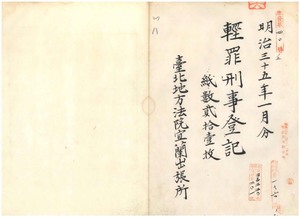 明治三十五年一月分
輕罪刑事登記
紙數貳拾壹枚
臺北地方法院宜蘭出張所